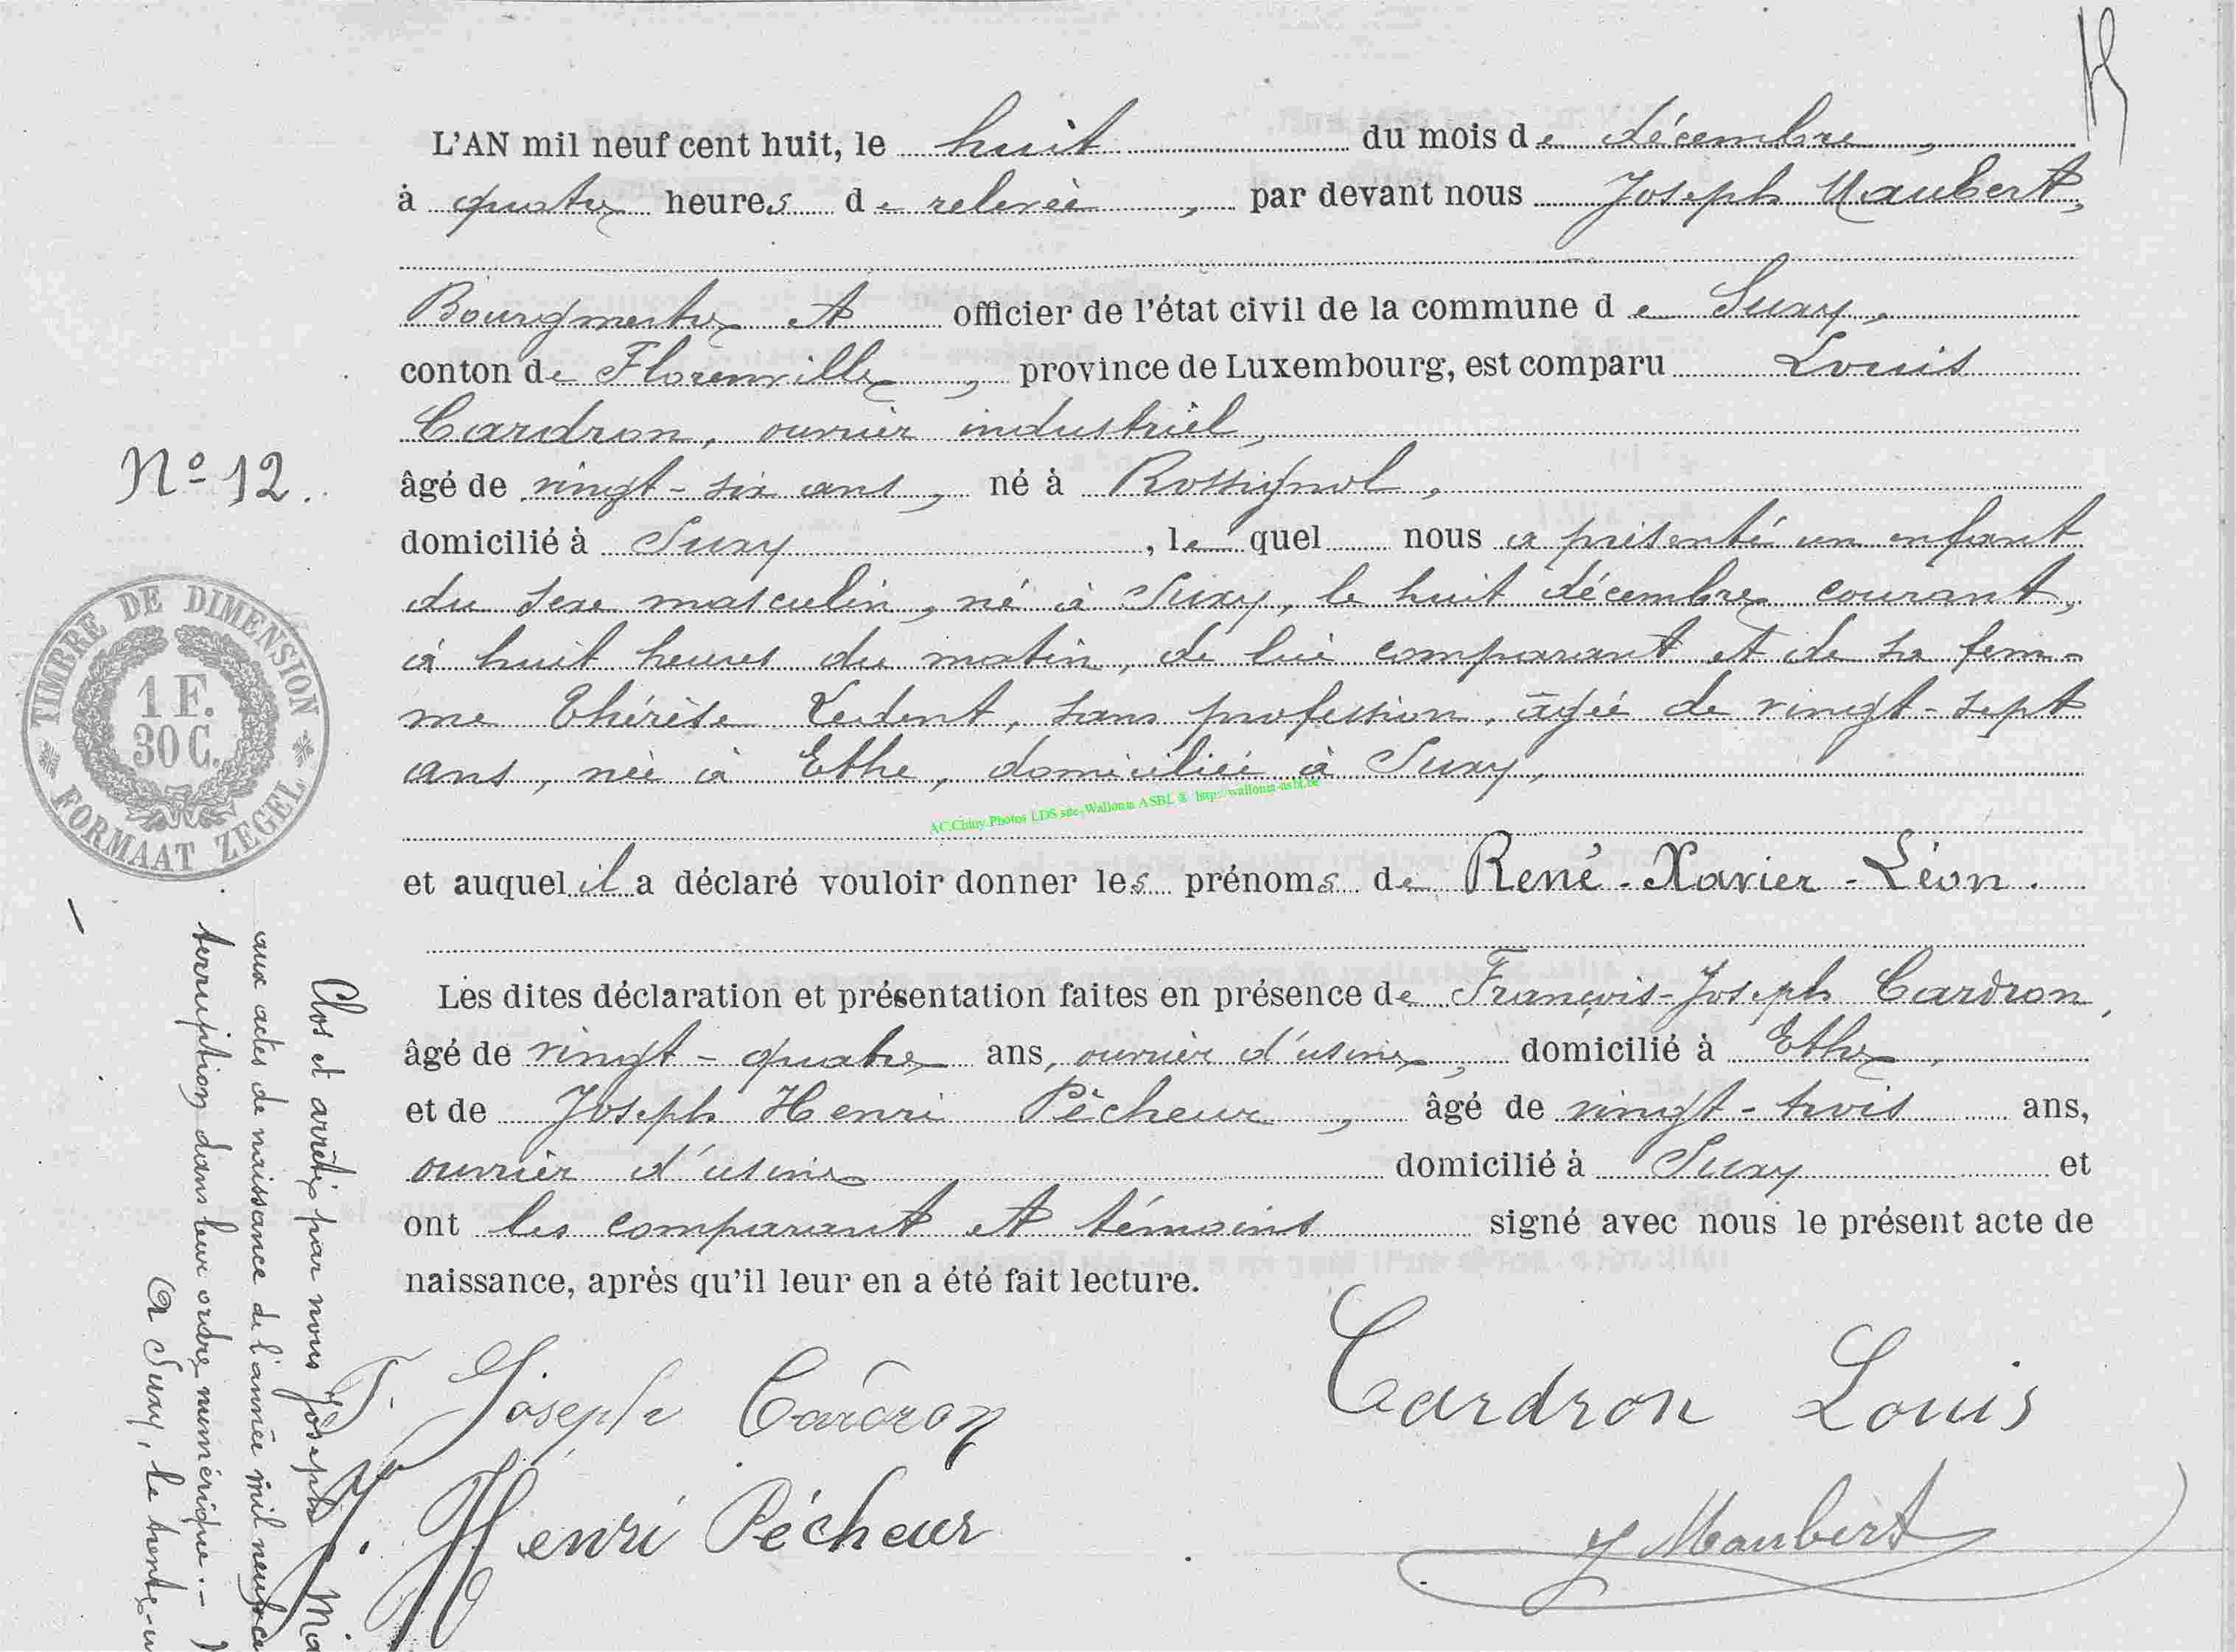 L'AN mil neuf cent huit, le huit du mois de décembre,
à quatre heures de relevée, par devant nous Joseph Maubert,
Bourgmestre et officier de l'état civil de la commune de Suxy,
conton de Florenville, province de Luxembourg, est comparu Louis
Cardron, ouvrier industriel,
âgé de vingt-six ans, né à Rossignol,
domicilié à Suxy, lequel nous a présenté un enfant
du sexe masculin, né à Suxy, le huit décembre courant,
à huit heures du matin, de lui comparant et de sa fem-
me Thérèse Ledent, sans profession, âgée de vingt-sept
ans, née à Ethe, domiciliée à Suxy,
AC.Chiny.Photos LDS site-Wallonia ASBL ® http://wallonia-asbl.be
et auquel il a déclaré vouloir donner les prénoms de René-Xavier-Léon.
Les dites déclaration et présentation faites en présence de François-Joseph Cardron,
âgé de vingt-quatre ans, ouvrier d'usine, domicilié à Ethe,
et de Joseph Henri Pêcheur, âgé de vingt-trois ans,
ouvrier d'usine domicilié à Suxy et
ont les comparant et témoins signé avec nous le présent acte de
naissance, après qu'il leur en a été fait lecture.
F. Joseph Cardron
Cardron Louis
J. Henri Pécheur
J Maubert
No 12.
TIMBRE DE DIMENSION
1 F.
30 C.
FORMAAT ZEGEL
Clos et arrêté par nous Joseph
aux actes de naissance de l'année mil neuf ce
terruption dans leur ordre numérique.-
A Suxy, le trente-u